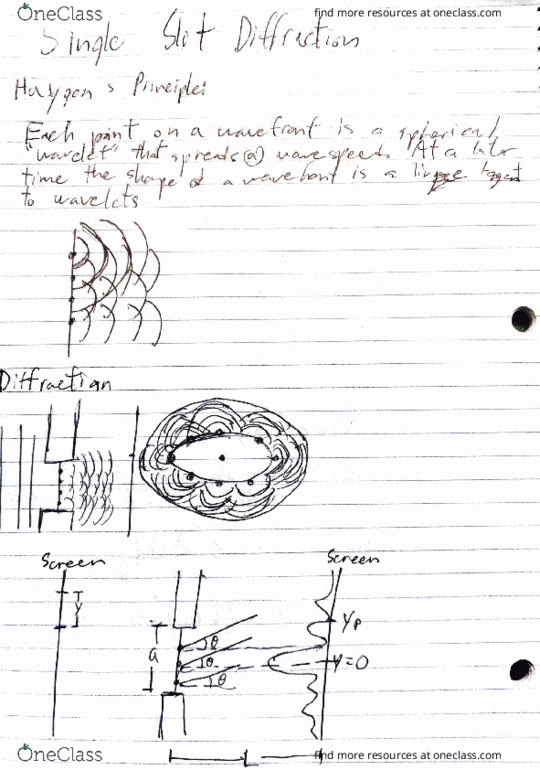 OneClass find more resources at oneclass.com
Single Slit Diffraction
Huygen's Principle:
Each point on a wavefront is a spherical
"wavelet" that spreads @ wavespeed. At a later
time the shape of a wavefront is a tangent
to wavelets
Diffraction
Screen Screen
y
a
θ
θ
θ
yp
y=0
OneClass find more resources at oneclass.com